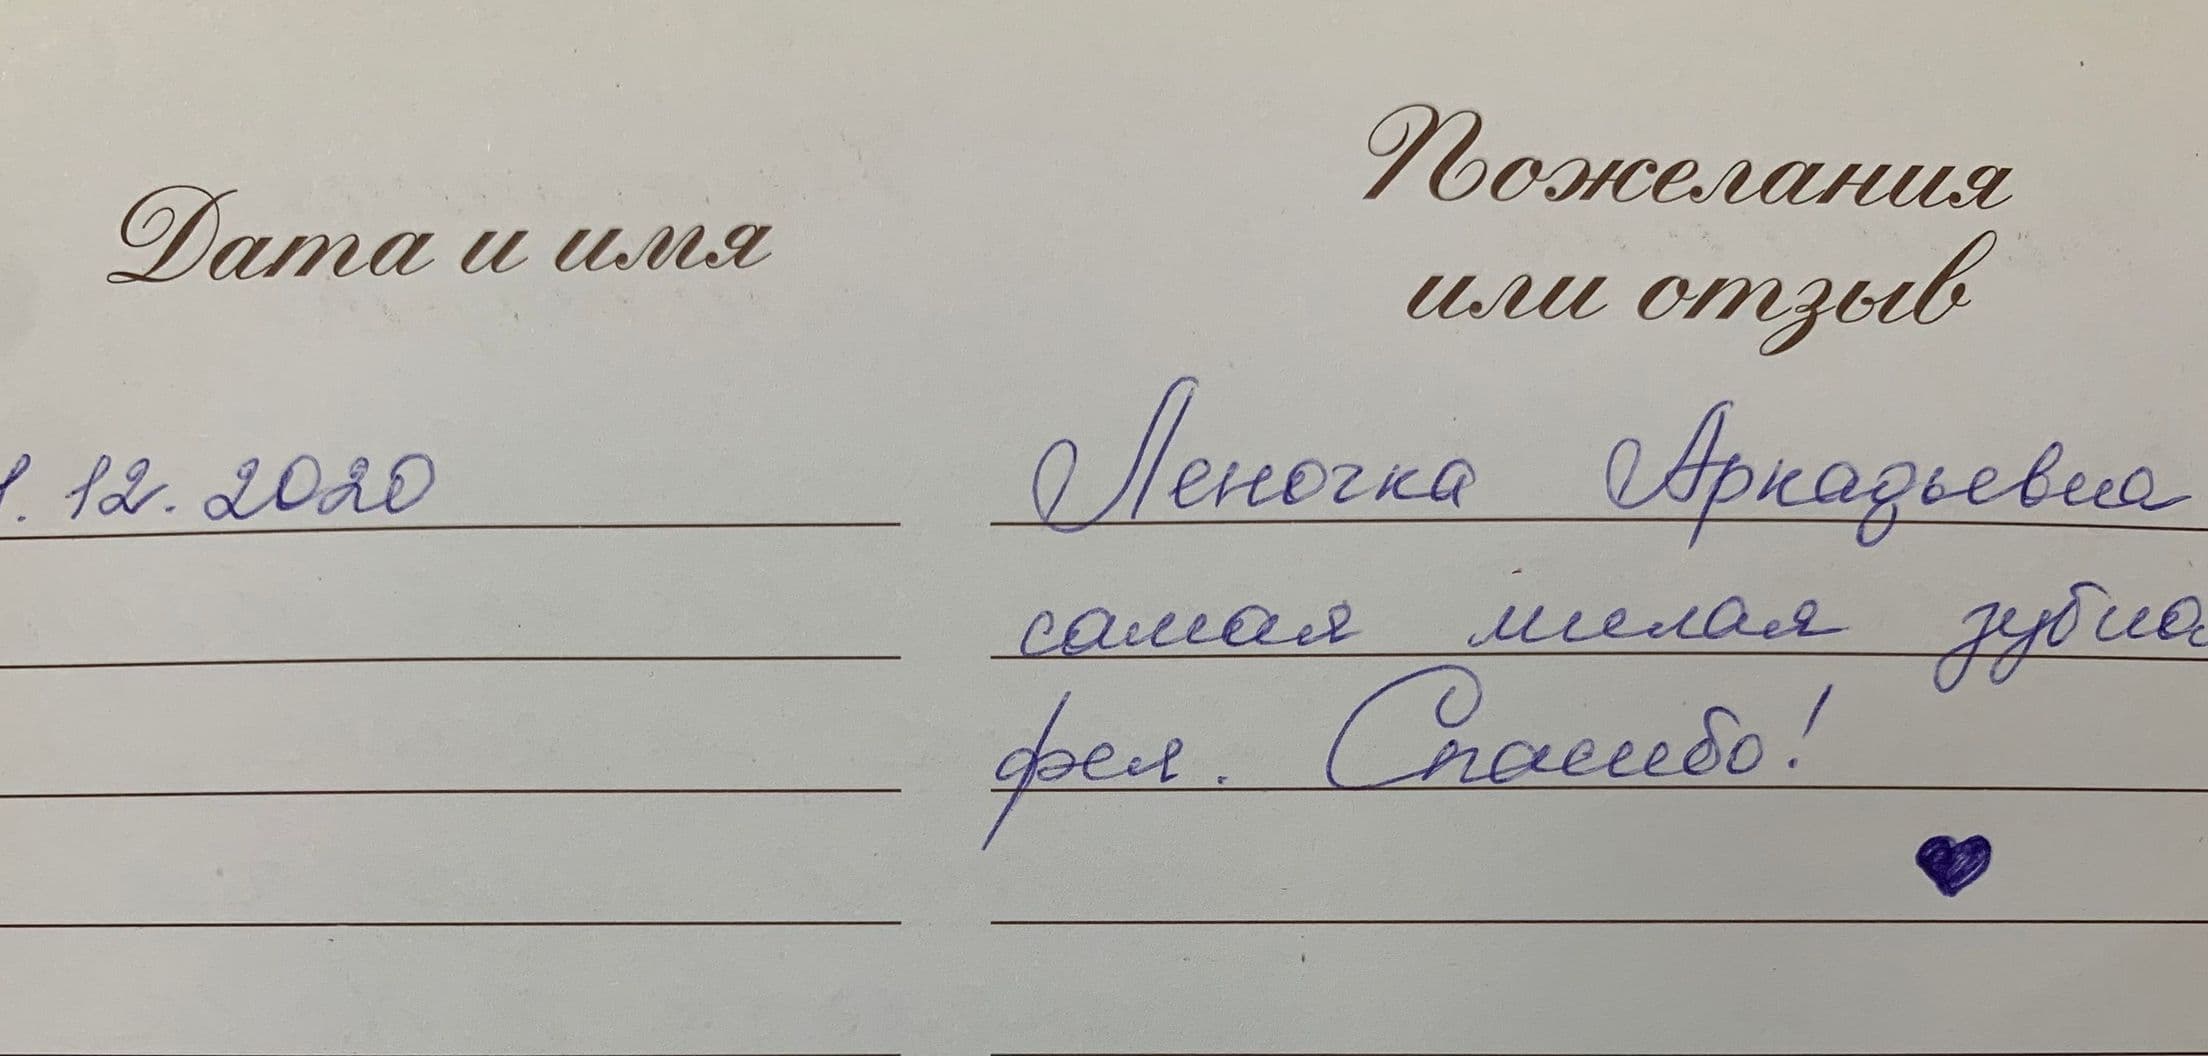 Дата и имя
Пожелания
или отзыв
1. 12. 2020
Леночка Аркадьевна
самая милая зубна
фея. Спасибо!